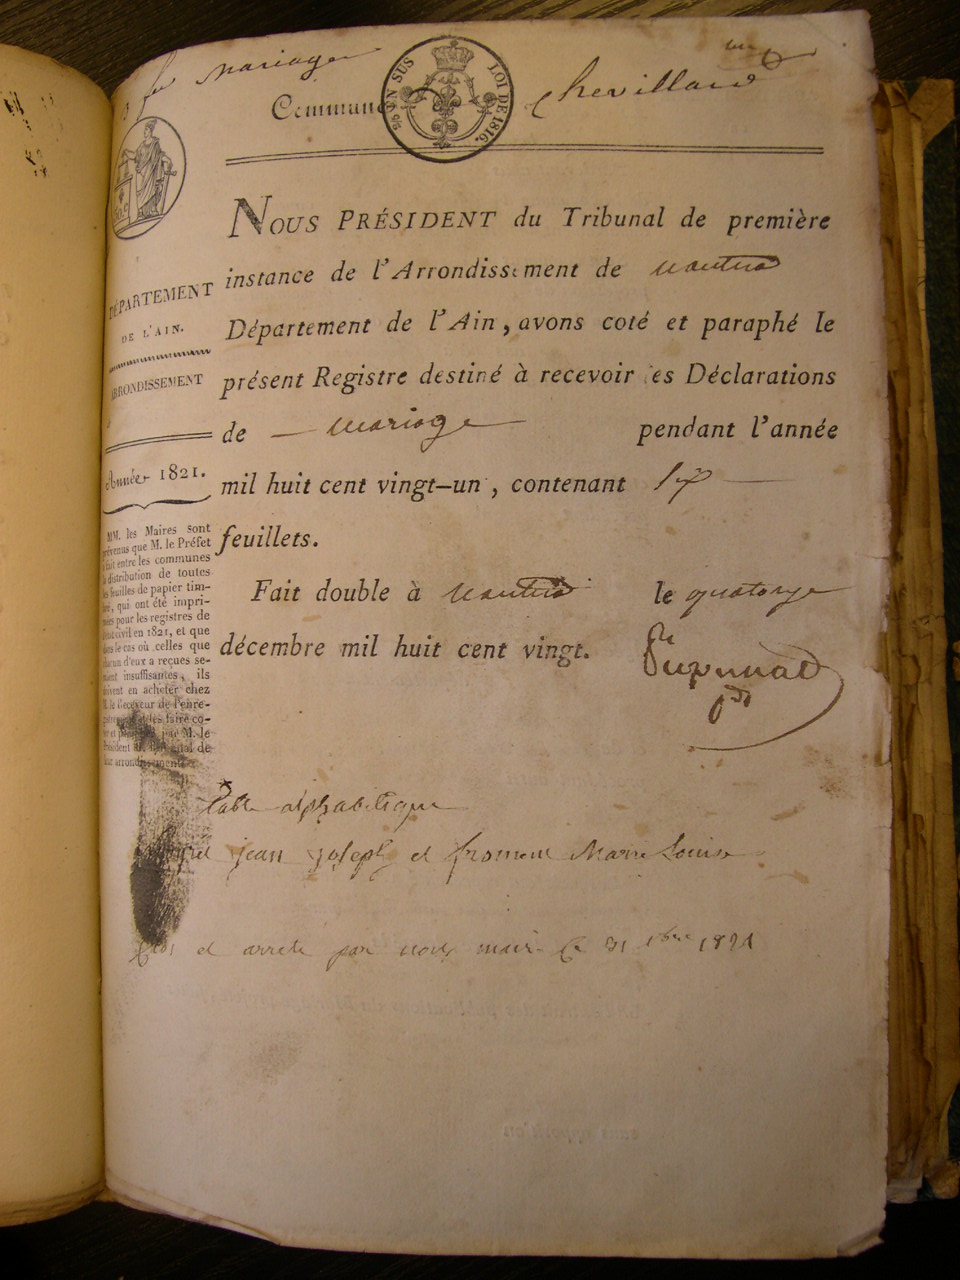 mariage
Commune Chevillard
% EN SUS LOI DE 1816.
NOUS PRÉSIDENT du Tribunal de première
instance de l'Arrondissement de nantua
Département de l'Ain, avons coté et paraphé le
présent Registre destiné à recevoir les Déclarations
de mariage pendant l'année
mil huit cent vingt-un, contenant six
feuillets.
Fait double à nantua le quatorze
décembre mil huit cent vingt.
DÉPARTEMENT
DE L'AIN.
ARRONDISSEMENT
Année 1821.
MM. les Maires sont
prévenus que M. le Préfet
fait entre les communes
la distribution de toutes
les feuilles de papier tim-
bré, qui ont été impri-
mées pour les registres de
l'état civil en 1821, et que
dans le cas où celles que
chacun d'eux a reçues se-
raient insuffisantes, ils
doivent en acheter chez
M. le Receveur de l'enre-
gistrement et les faire co-
ter et parapher par M. le
Président du Tribunal de
leur arrondissement.
table alphabetique
jean joseph et froment Marie Louise
Clos et arrete par nous maire le 31 1821